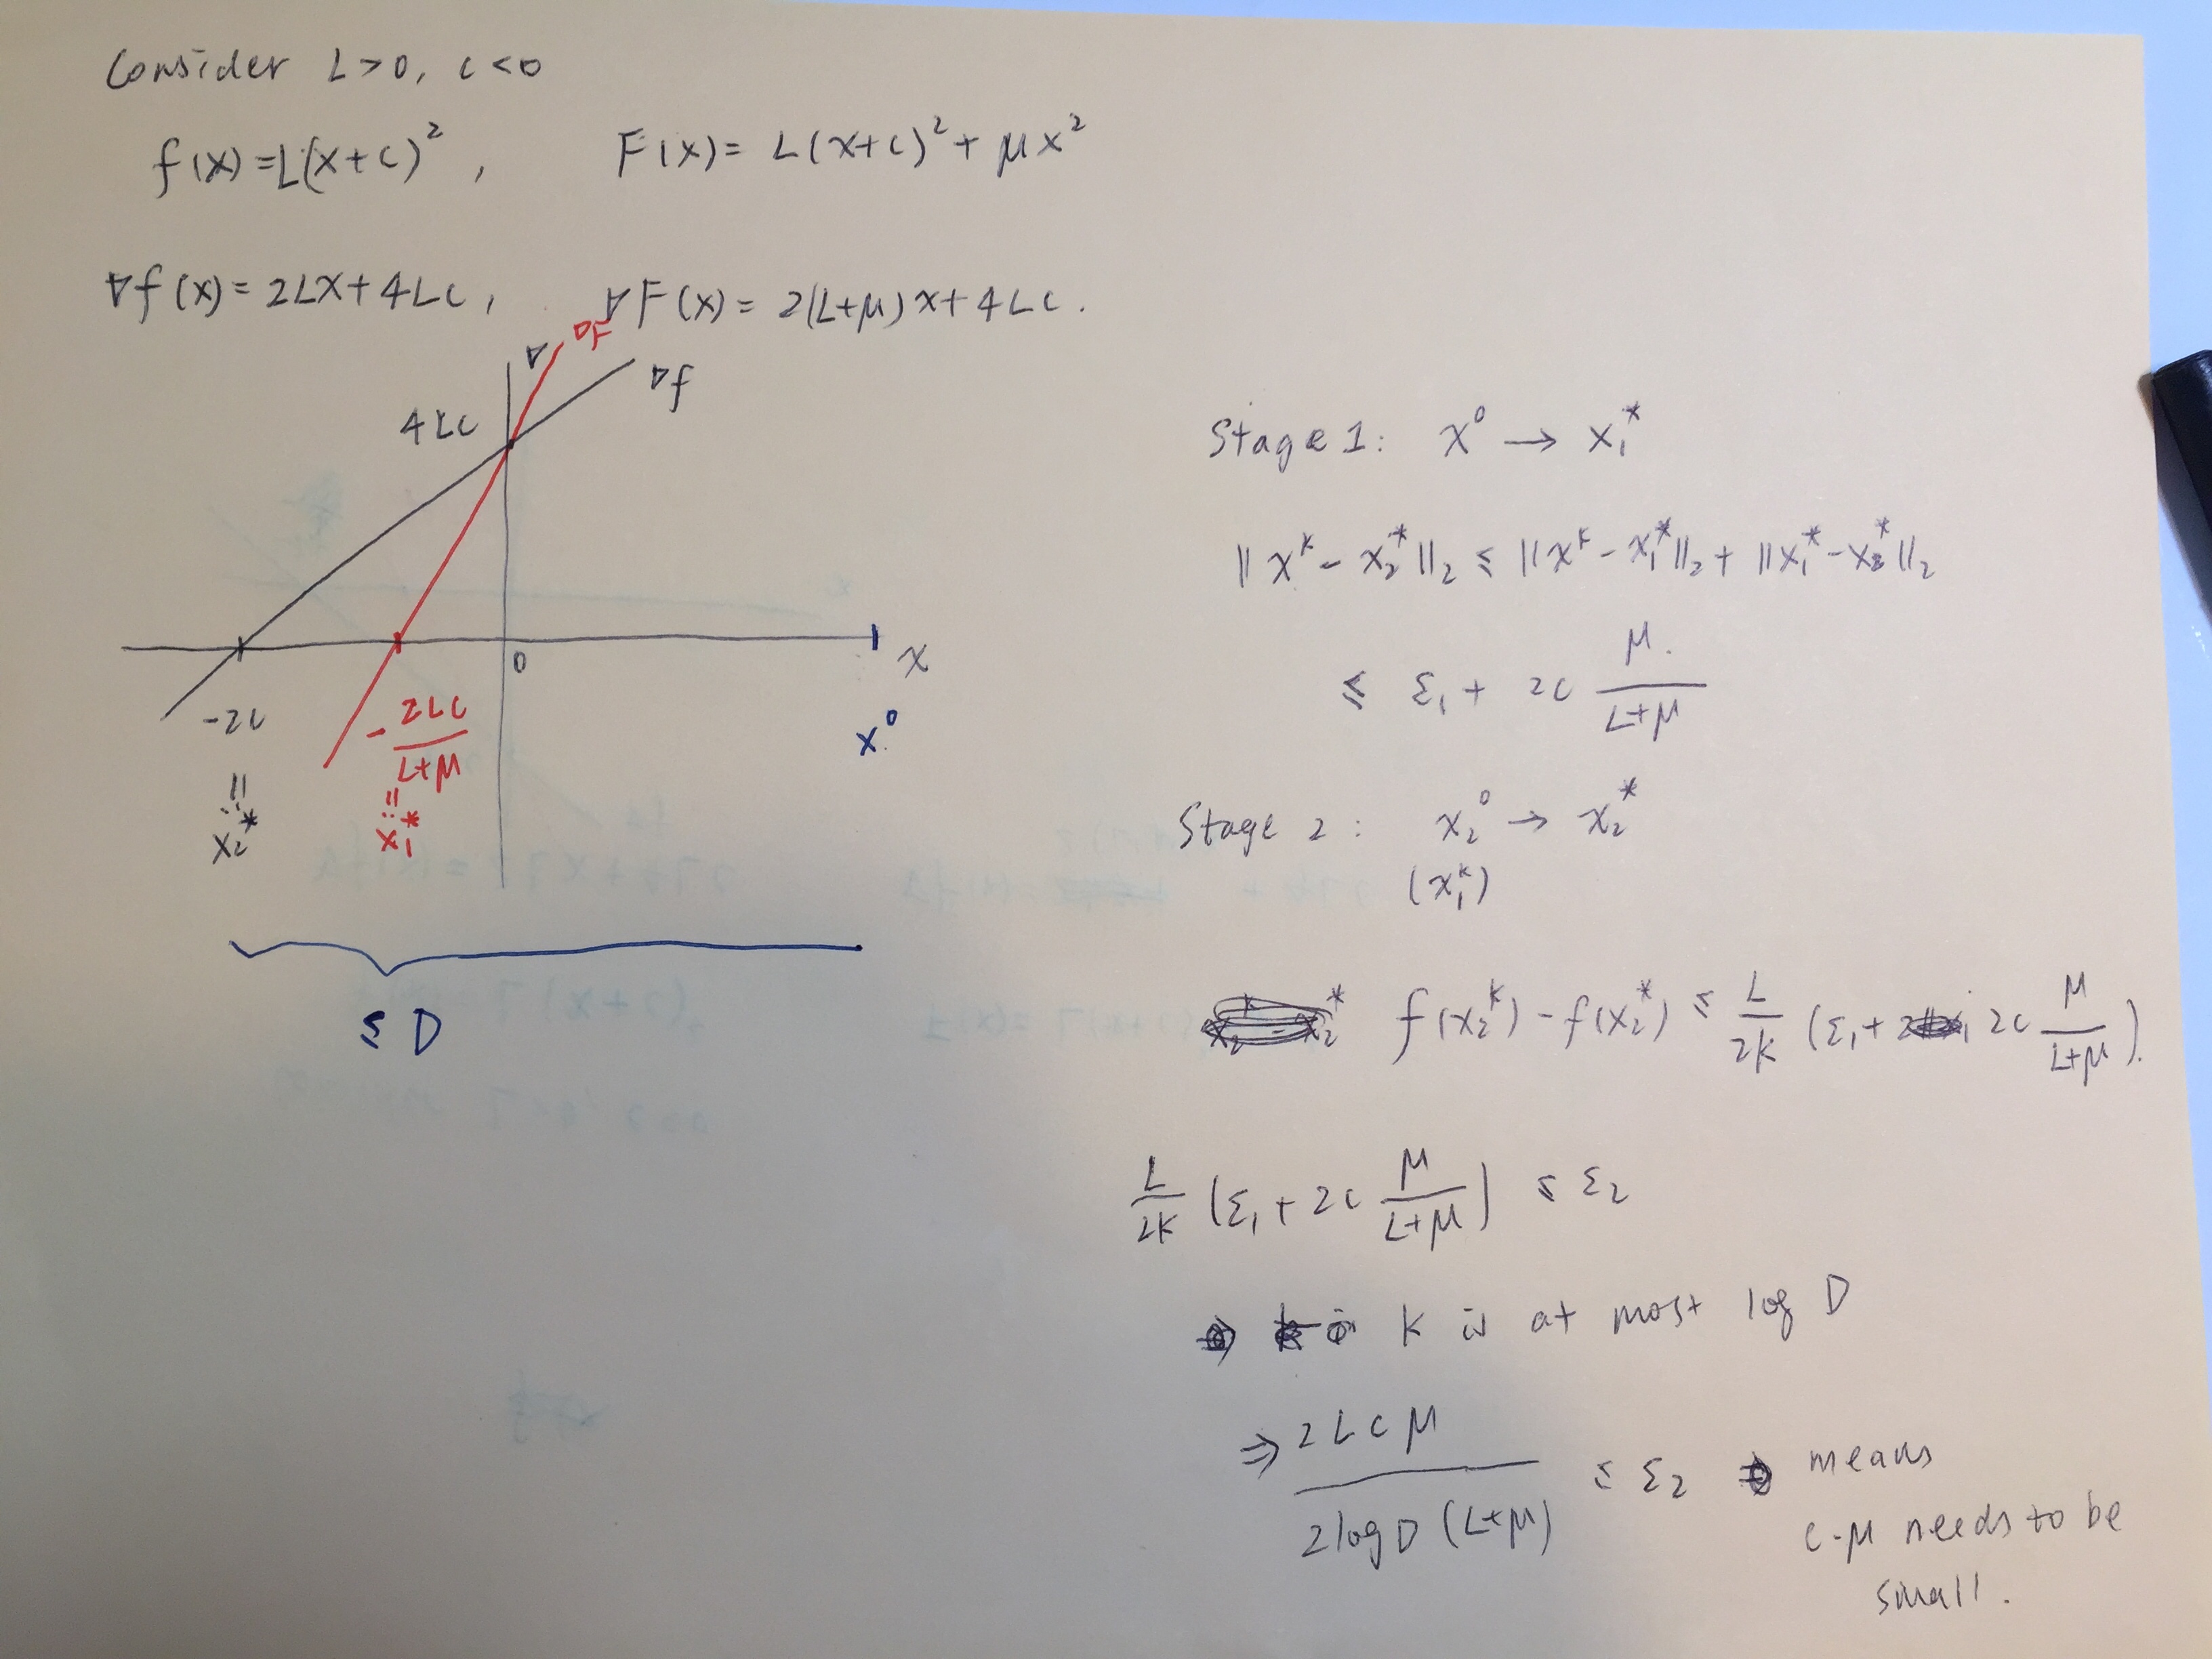 Consider L>0, c<0
f(x)=L(x+c)², F(x)= L(x+c)²+ μx²
∇f(x)= 2Lx+4Lc, ∇F(x)= 2(L+μ)x+4Lc.
∇ ∇F
∇f
4Lc
0
x
-2c
- 2Lc / (L+μ)
x⁰
=: x₂*
=: x₁*
≤ D
Stage 1: x⁰ → x₁*
‖x^k - x₂*‖₂ ≤ ‖x^k - x₁*‖₂ + ‖x₁* - x₂*‖₂
≤ ε₁ + 2c μ/(L+μ)
Stage 2: x₂⁰ → x₂*
(x₁^k)
f(x₂^k) - f(x₂*) ≤ L/2k (ε₁ + 2c μ/(L+μ)).
L/2k (ε₁ + 2c μ/(L+μ)) ≤ ε₂
k is at most log D
⇒ 2Lcμ / 2logD (L+μ) ≤ ε₂ means
c·μ needs to be
small.